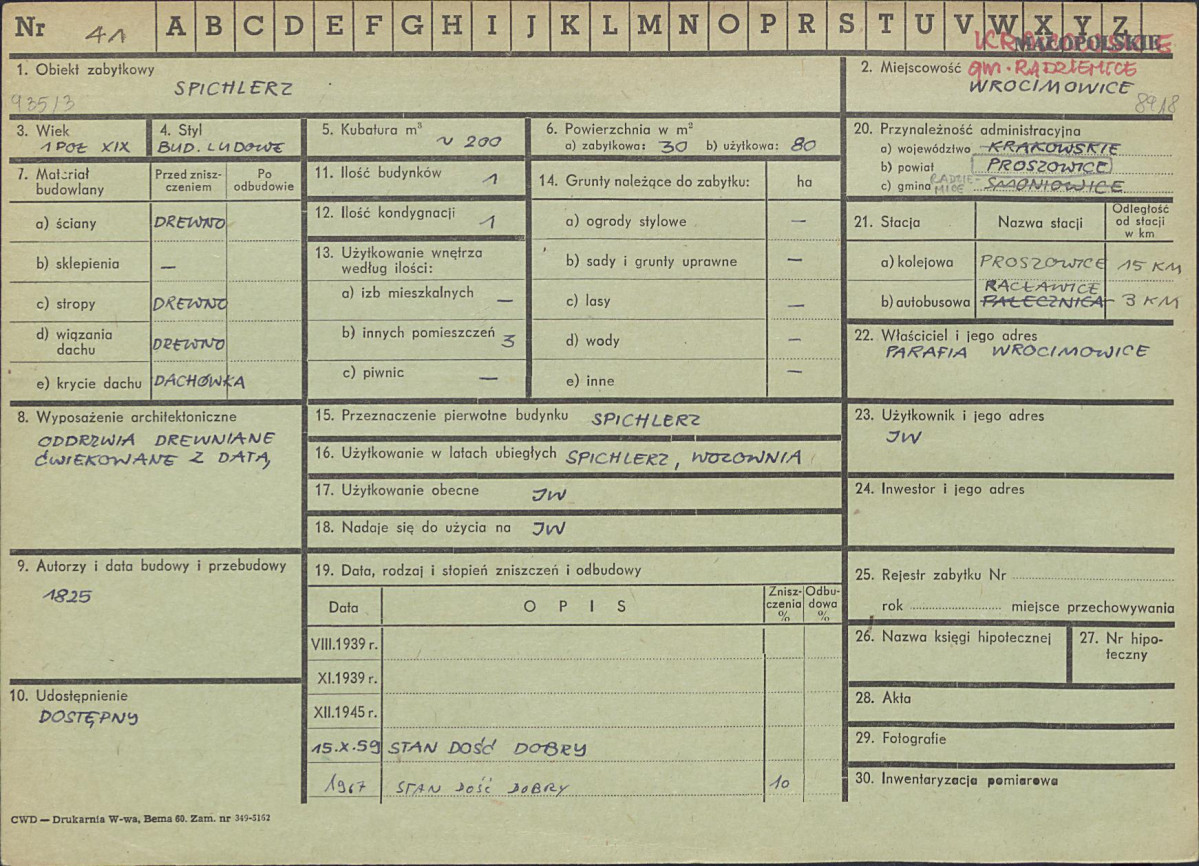 Nr 41 A B C D E F G H I J K L M N O P R S T U V W X Y Z
MAŁOPOLSKIE
1. Obiekt zabytkowy
SPICHLERZ
935/3
2. Miejscowość gm. RADZIEMICE
WROCIMOWICE
8918
3. Wiek
1 POŁ XIX
4. Styl
BUD. LUDOWE
5. Kubatura m³
~ 200
6. Powierzchnia w m²
a) zabytkowa: 30 b) użytkowa: 80
7. Materiał budowlany
Przed zniszczeniem
Po odbudowie
a) ściany DREWNO
b) sklepienia —
c) stropy DREWNO
d) wiązania dachu DREWNO
e) krycie dachu DACHÓWKA
8. Wyposażenie architektoniczne
ODDRZWIA DREWNIANE
ĆWIEKOWANE Z DATĄ,
9. Autorzy i data budowy i przebudowy
1825
10. Udostępnienie
DOSTĘPNY
11. Ilość budynków 1
12. Ilość kondygnacji 1
13. Użytkowanie wnętrza
według ilości:
a) izb mieszkalnych —
b) innych pomieszczeń 3
c) piwnic —
14. Grunty należące do zabytku: ha
a) ogrody stylowe —
b) sady i grunty uprawne —
c) lasy —
d) wody —
e) inne —
15. Przeznaczenie pierwotne budynku SPICHLERZ
16. Użytkowanie w latach ubiegłych SPICHLERZ, WOZOWNIA
17. Użytkowanie obecne JW
18. Nadaje się do użycia na JW
19. Data, rodzaj i stopień zniszczeń i odbudowy
Data OPIS Zniszczenia % Odbudowa %
VIII.1939 r.
XI.1939 r.
XII.1945 r.
15.X.59 STAN DOŚĆ DOBRY
1967 STAN DOŚĆ DOBRY 10
20. Przynależność administracyjna
a) województwo KRAKOWSKIE
b) powiat PROSZOWICE
c) gmina RADZIEMICE SMONIOWICE
21. Stacja Nazwa stacji Odległość od stacji w km
a) kolejowa PROSZOWICE 15 KM
RACŁAWICE
b) autobusowa PAŁECZNICA 3 KM
22. Właściciel i jego adres
PARAFIA WROCIMOWICE
23. Użytkownik i jego adres
JW
24. Inwestor i jego adres
25. Rejestr zabytku Nr
rok miejsce przechowywania
26. Nazwa księgi hipotecznej
27. Nr hipoteczny
28. Akta
29. Fotografie
30. Inwentaryzacja pomiarowa
CWD — Drukarnia W-wa, Bema 60. Zam. nr 349-5162